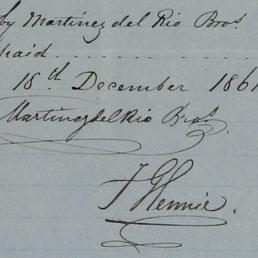 by Martínez del Rio Bros
paid . . . . . . . . . . . . . .
18th. December 1861
Martinez del Rio Bros.